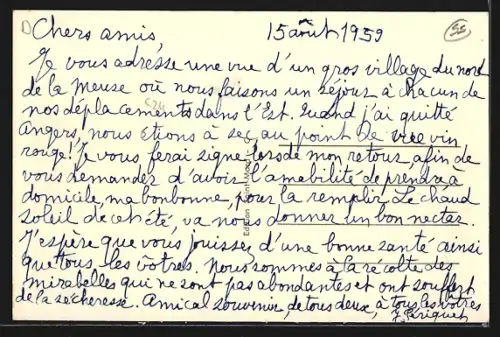 Chers amis 15 août 1959
Je vous adresse une vue d'un gros village du nord
de la Meuse où nous faisons un séjour à chacun de
nos déplacements dans l'Est. Quand j'ai quitté
Angers, nous étions à sec, au point de vue vin
rouge! Je vous ferai signe lors de mon retour, afin de
vous demander d'avoir l'amabilité de prendre à
domicile, ma bonbonne, pour la remplir. Le chaud
soleil de cet été, va nous donner un bon nectar.
J'espère que vous jouissez d'une bonne santé ainsi
que tous les vôtres. Nous sommes à la récolte des
mirabelles qui ne sont pas abondantes et ont souffert
de la sécheresse. Amical souvenir, de tous deux, à tous les vôtres